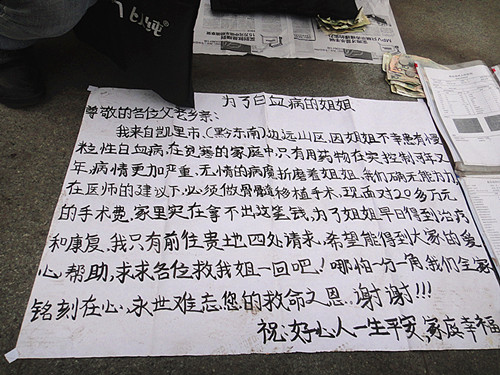 为了白血病的姐姐
尊敬的各位父老乡亲:
我来自凯里市,(黔东南)边远山区,因姐姐不幸患有慢
粒性白血病,在贫寒的家庭中,只有用药物在实控制
年,病情更加严重,无情的病魔折磨着姐姐,我们确无能为力
在医师的建议下,必须做骨髓移植手术,现面对20多万元
的手术费,家里实在拿不出这些钱,为了姐姐早日得到治疗
和康复,我只有前往贵地,四处请求,希望能得到大家的爱
心帮助,求求各位救我姐一回吧!哪怕一分一角,我们全家
铭刻在心,永世难忘您的救命之恩,谢谢!!!
祝:好心人一生平安,家庭幸福